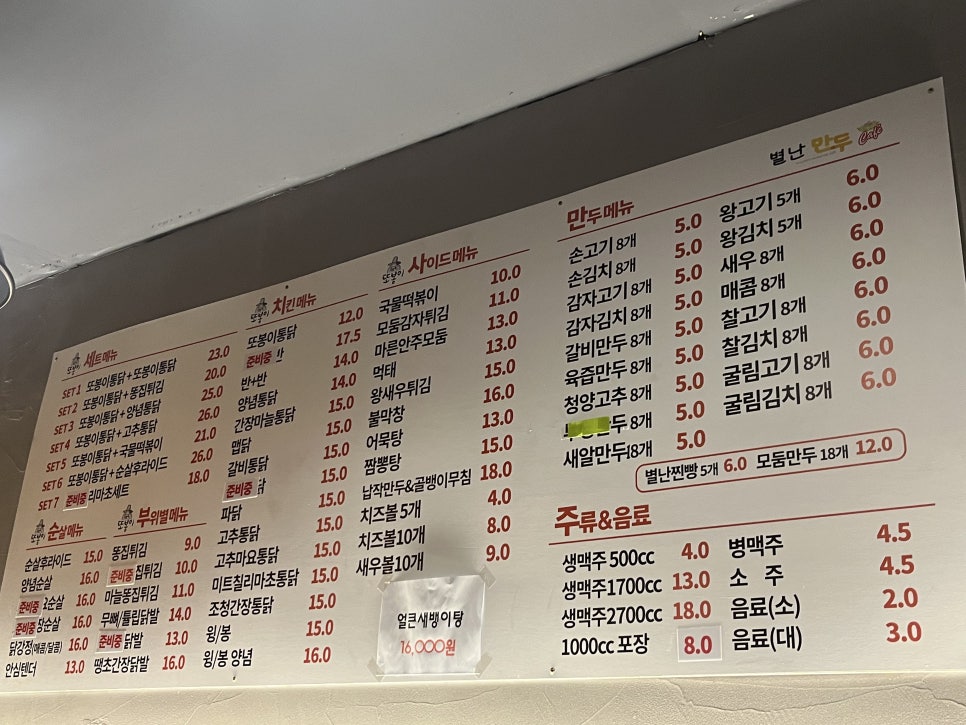 별난 만두 Café
또봉이 세트메뉴
SET 1 또봉이통닭+또봉이통닭 23.0
SET 2 또봉이통닭+똥집튀김 20.0
SET 3 또봉이통닭+양념통닭 25.0
SET 4 또봉이통닭+고추통닭 26.0
SET 5 또봉이통닭+국물떡볶이 21.0
SET 6 또봉이통닭+순살후라이드 26.0
SET 7 준비중 리마초세트 18.0
또봉이 순살메뉴
순살후라이드 15.0
양념순살 16.0
준비중 순살 16.0
준비중 장순살 16.0
닭강정(매콤/달콤) 16.0
안심텐더 13.0
또봉이 부위별메뉴
똥집튀김 9.0
준비중 집튀김 10.0
마늘똥집튀김 11.0
무뼈/튤립닭발 14.0
준비중 닭발 13.0
땡초간장닭발 16.0
또봉이 치킨메뉴
또봉이통닭 12.0
준비중 17.5
반+반 14.0
양념통닭 14.0
간장마늘통닭 15.0
맵닭 15.0
갈비통닭 15.0
준비중 15.0
파닭 15.0
고추통닭 15.0
고추마요통닭 15.0
미트칠리마초통닭 15.0
조청간장통닭 15.0
윙/봉 15.0
윙/봉 양념 16.0
또봉이 사이드메뉴
국물떡볶이 10.0
모둠감자튀김 11.0
마른안주모둠 13.0
먹태 13.0
왕새우튀김 15.0
불막창 16.0
어묵탕 13.0
짬뽕탕 15.0
납작만두&골뱅이무침 18.0
치즈볼 5개 4.0
치즈볼10개 8.0
새우볼10개 9.0
얼큰새뱅이탕
16,000원
만두메뉴
손고기 8개 5.0
손김치 8개 5.0
감자고기 8개 5.0
감자김치 8개 5.0
갈비만두 8개 5.0
육즙만두 8개 5.0
청양고추 8개 5.0
만두 8개 5.0
새알만두18개 5.0
왕고기 5개 6.0
왕김치 5개 6.0
새우 8개 6.0
매콤 8개 6.0
찰고기 8개 6.0
찰김치 8개 6.0
굴림고기 8개 6.0
굴림김치 8개 6.0
별난찐빵 5개 6.0 모둠만두 18개 12.0
주류&음료
생맥주 500cc 4.0
생맥주1700cc 13.0
생맥주2700cc 18.0
1000cc 포장 8.0
병맥주 4.5
소 주 4.5
음료(소) 2.0
음료(대) 3.0